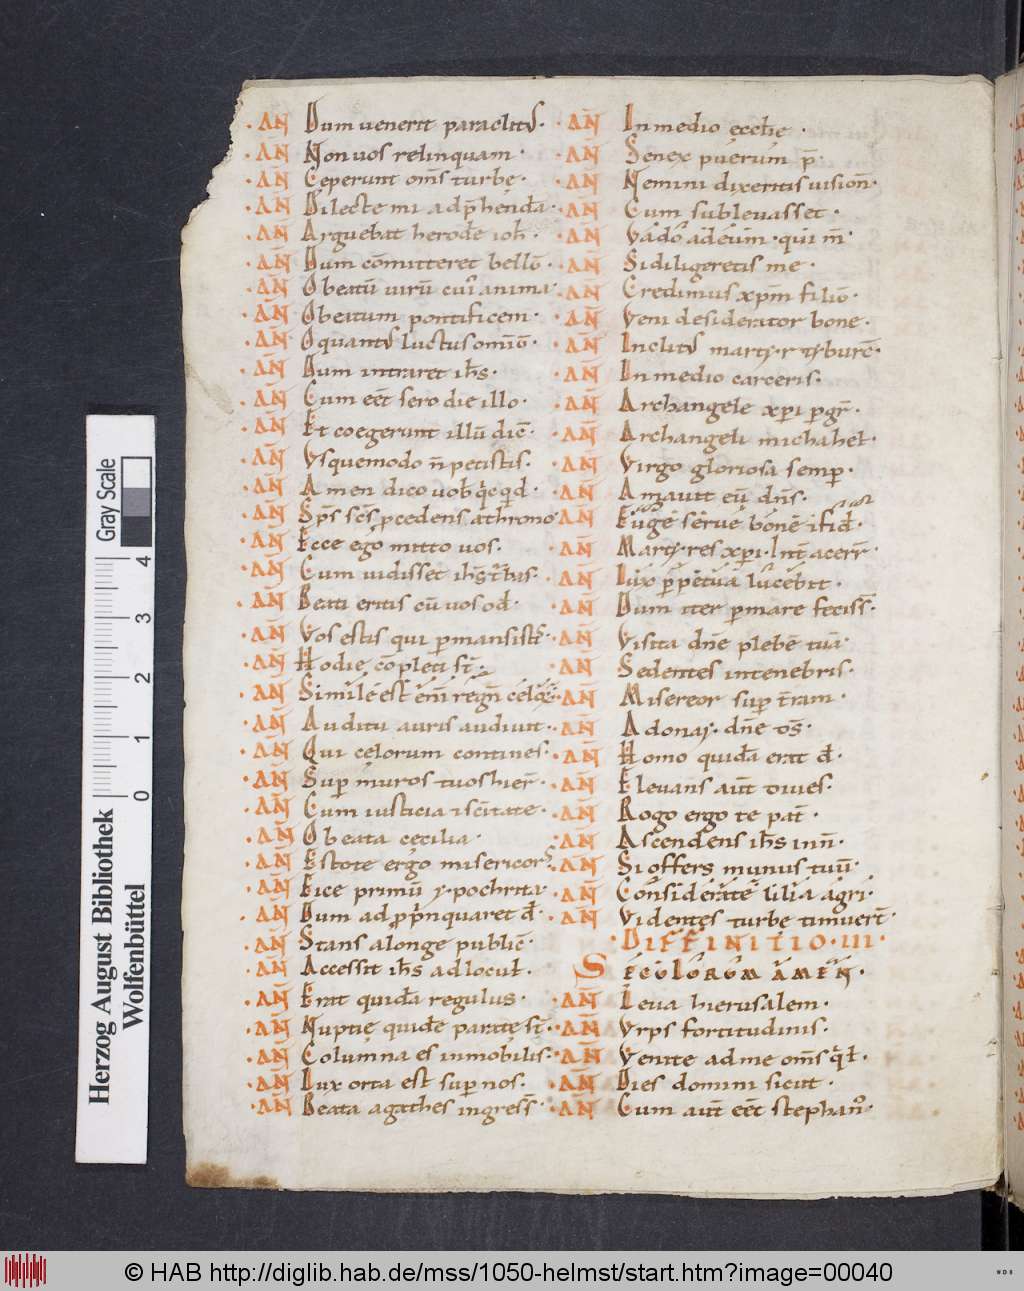 · AN̄ Dum venerit paraclitus ·
· AN̄ Non vos relinquam ·
· AN̄ Ceperunt om̄s turbę ·
· AN̄ Dilecte mi adp̄henda ·
· AN̄ Arguebat herodē ioh̄ ·
· AN̄ Dum cōmitteret bellū ·
· AN̄ O beatū virū cui anima ·
· AN̄ O beatum pontificem ·
· AN̄ O quantus luctus omniū ·
· AN̄ Dum intraret ih̄s ·
· AN̄ Cum eēt sero die illo ·
· AN̄ Et coegerunt illū dic̄ ·
· AN̄ Usquemodo n̄ petistis ·
· AN̄ Amen dico vob
· AN̄ Sp̄s sc̄s pcedens a throno
· AN̄ Ecce ego mitto vos ·
· AN̄ Cum vidisset ih̄s t̄bas ·
· AN̄ Beati eritis cū vos od̄ ·
· AN̄ Vos estis qui pmansistis ·
· AN̄ Hodie cōpleti st̄ ·
· AN̄ Simile est em̄ regn̄ celoꝝ ·
· AN̄ Auditu auris audivit ·
· AN̄ Qui celorum contines ·
· AN̄ Sup muros tuos hier̄ ·
· AN̄ Cum iusticia 7 sc̄itate ·
· AN̄ O beata cecilia ·
· AN̄ Estote ergo misericor̄
· AN̄ Eice primū ypochrita
· AN̄ Dum adppinquaret d̄ ·
· AN̄ Stans a longe public̄ ·
· AN̄ Accessit ih̄s ad locut̄ ·
· AN̄ Erat quidā regulus ·
· AN̄ Nuptię quidē paratę st̄ ·
· AN̄ Columna es inmobilis ·
· AN̄ Lux orta est sup nos ·
· AN̄ Beata agathes ingress̄ ·
· AN̄ In medio ecclie ·
· AN̄ Senex puerum p̄ ·
· AN̄ Nemini dixeritis vision̄ ·
· AN̄ Cum sublevasset ·
· AN̄ Vado ad eum · qui m̄ ·
· AN̄ Si diligeretis me ·
· AN̄ Credimus xpm̄ filiū ·
· AN̄ Veni desiderator bone ·
· AN̄ Inclitus martyr tyburc̄ ·
· AN̄ In medio carceris ·
· AN̄ Archangele xpi pgr̄ ·
· AN̄ Archangeli michahel ·
· AN̄ Virgo gloriosa semp ·
· AN̄ Amavit eū dn̄s ·
· AN̄ Euge serve bone fid̄ ·
· AN̄ Martyres xpi ·
· AN̄ Lux ppetua lucebit ·
· AN̄ Dum iter pmare feciss̄ ·
· AN̄ Visita dn̄e plebē tuā ·
AN̄ Sedentes in tenebris ·
· AN̄ Misereor sup t̄ram ·
· AN̄ Adonay · dn̄e ds̄ ·
· AN̄ Homo quidā erat d̄ ·
· AN̄ Elevans aut̄ divies ·
· AN̄ Rogo ergo te pat̄ ·
· AN̄ Ascendens ih̄s in n̄ ·
· AN̄ Si offers munus tuū ·
· AN̄ Considerate lilia agri ·
· AN̄ Videntes turbę timuert̄ ·
· DIFFINITIO · III ·
SECULORUM AMEN ·
· AN̄ Leva hierusalem ·
· AN̄ Urps fortitudinis ·
· AN̄ Venite ad me om̄s
· AN̄ Dies domini sicut ·
· AN̄ Cum aut̄ eēt stephan ·
Gray Scale
0 1 2 3 4
Herzog August Bibliothek
Wolfenbüttel
© HAB http://diglib.hab.de/mss/1050-helmst/start.htm?image=00040